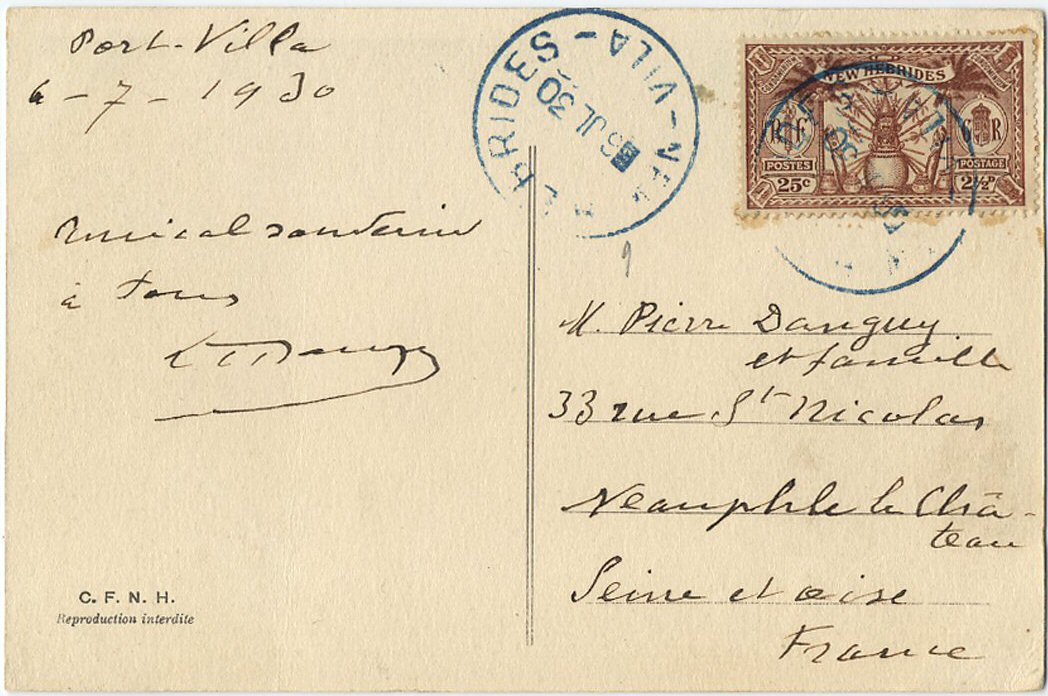 Port-Villa
6-7-1930
Amical souvenir
à tous
NEW HEBRIDES
R F
G R
POSTES
POSTAGE
25c
2½D
BRIDES
VILA - NEW
JL 30
M. Pierre Danguy
et famille
33 rue St Nicolas
Neauphle le Châ-
teau
Seine et oise
France
C. F. N. H.
Reproduction interdite